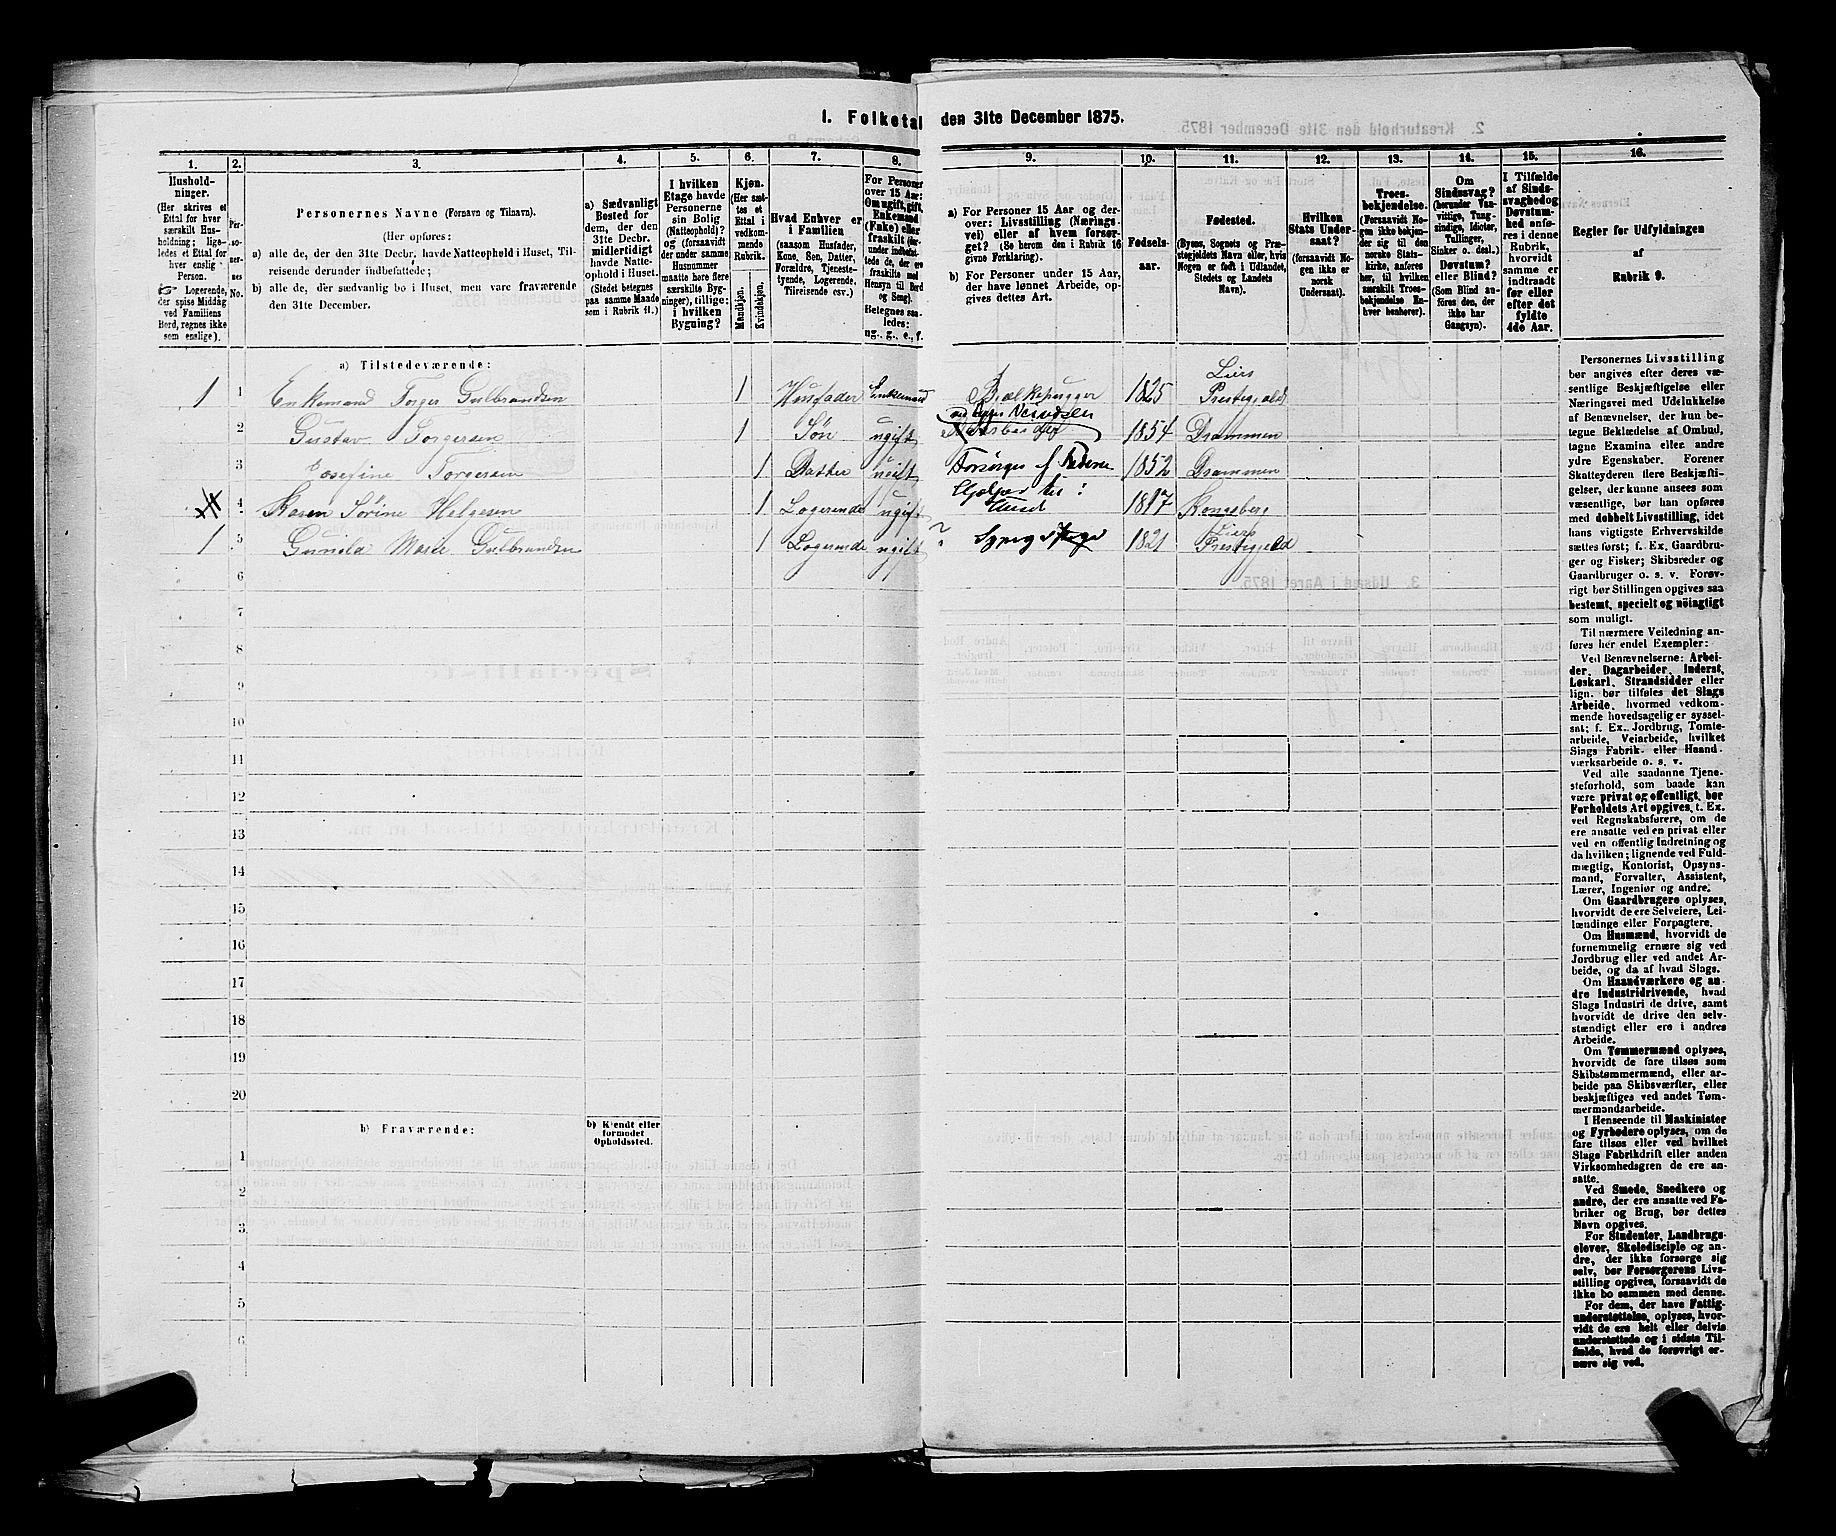 1. Folketal den 31te December 1875.
1.
2.
3.
4.
5.
6.
7.
8.
9.
10.
11.
12.
13.
14.
15.
16.
Hushold-
ninger.
(Her skrives et
Ettal for hver
særskilt Hus-
holdning; lige-
ledes et Ettal for
hver enslig
Person.
Logerende,
der spise Middag
ved Familiens
Bord, regnes ikke
som enslige).
Per-
so-
ner-
nes
No.
Personernes Navne (Fornavn og Tilnavn).
(Her opføres:
a) alle de, der den 31te Decbr. havde Natteophold i Huset, Til-
reisende derunder indbefattede;
b) alle de, der sædvanlig bo i Huset, men vare fraværende
den 31te December.
a) Sædvanligt
Bosted for
dem, der den
31te Decbr.
midlertidigt
havde Natte-
ophold i Huset.
(Stedet betegnes
paa samme Maade
som i Rubrik 11.)
I hvilken
Etage havde
Personerne
sin Bolig
(Natteophold)?
og (forsaavidt
der under samme
Husnummer
maatte høre flere
særskilte Byg-
ninger), tillige:
i hvilken
Bygning?
Kjøn.
(Her sæt-
tes et
Ettal i
vedkom-
mende
Rubrik.
Mandkjøn.
Kvindekjøn.
Hvad Enhver er
i Familien
(saasom Husfader,
Kone, Søn, Datter,
Forældre, Tjeneste-
tyende, Logerende,
Tilreisende osv.)
For Personer
over 15 Aar:
Om ugift, gift,
Enkemand
(Enke) eller
fraskilt (der-
under indbefat-
tede de, der ere
fraskilte med
Hensyn til Bord
og Seng).
Betegnes saa-
ledes:
ug., g., e., f.
a) For Personer 15 Aar og der-
over: Livsstilling (Nærings-
vei) eller af hvem forsør-
get? (Se herom den i Rubrik 16
givne Forklaring).
b) For Personer under 15 Aar,
der have lønnet Arbeide, op-
gives dettes Art.
Fødsels-
aar.
Fødested.
(Byens, Sognets og Præ-
stegjeldets Navn eller, hvis
Nogen er født i Udlandet,
Stedets og Landets
Navn).
Hvilken
Stats Under-
saat?
(forsaavidt No-
gen ikke er
norsk
Undersaat).
Troes-
bekjendelse.
(Forsaavidt No-
gen ikke bekjen-
der sig til den
norske Stats-
kirke, anføres
her, til hvilken
særskilt Troes-
bekjendelse En-
hver henhører).
Om
Sindssvag?
(herunder Van-
vittige, Tung-
sindige, Idioter,
Tullinger,
Sinker o. desl.)
Døvstum?
eller Blind?
(Som Blind an-
føres den, der
ikke har
Gangsyn).
I Tilfælde
af Sinds-
svaghed og
Døvstum-
hed anfø-
res i denne
Rubrik,
hvorvidt
samme er
indtraadt
før eller
efter det
fyldte
4de Aar.
Regler for Udfyldningen
af
Rubrik 9.
a) Tilstedeværende:
1 1 Enkemand Torger Gulbrandsen 1 Husfader Enkemand Bielkehugger 1825 Liers Prestegjeld
2 Gustav Torgersen 1 Søn ugift Arbeider 1854 Drammen
3 Josefine Torgersen 1 Datter ugift Forsørges af Faderen 1852 Drammen
4 Karen Sörine Helgesen 1 Logerende ugift Hjelper til i Huset 1817 Kongsberg
1 5 Gunild Marie Gulbrandsen 1 Logerende ugift ? 1821 Liers Prestegjeld
6
7
8
9
10
11
12
13
14
15
16
17
18
19
20
b) Fraværende:
b) Kjendt eller
formodet
Opholdssted.
1
2
3
4
5
6
Personernes Livsstilling
bør angives efter deres væ-
sentlige Beskjæftigelse eller
Næringsvei med Udelukkelse
af Benævnelser, der kun be-
tegne Beklædelse af Ombud,
tagne Examina eller andre
ydre Egenskaber. Forener
Skatteyderen flere Beskjæfti-
gelser, der kunne ansees som
væsentlige, bør han opføres
med dobbelt Livsstilling, idet
hans vigtigste Erhvervskilde
sættes først; f. Ex. Gaardbru-
ger og Fisker; Skibsreder og
Gaardbruger o. s. v. Forøv-
rigt bør Stillingen opgives saa
bestemt, specielt og nöiagtigt
som muligt.
Til nærmere Veiledning an-
føres her endel Exempler:
Ved Benævnelserne: Arbei-
der, Dagarbeider, Inderst,
Løskarl, Strandsidder eller
lign. bør tilføies det Slags
Arbeide, hvormed vedkom-
mende hovedsagelig er syssel-
sat; f. Ex. Jordbrug, Tomte-
arbeide, Veiarbeide, hvilket
Slags Fabrik- eller Haand-
værksarbeide o. s. v.
Ved alle saadanne Tjene-
steforhold, som baade kan
være privat og offentligt, bør
Forholdets Art opgives, t. Ex.
ved Regnskabsførere, om de
ere ansatte ved en privat eller
ved en offentlig Indretning og
da hvilken; lignende ved Fuld-
mægtig, Kontorist, Opsyns-
mand, Forvalter, Assistent,
Lærer, Ingeniør og andre.
Om Gaardbrugere oplyses,
hvorvidt de ere Selveiere, Lei-
lændinge eller Forpagtere.
Om Husmænd, hvorvidt de
fornemmelig ernære sig ved
Jordbrug eller ved andet Ar-
beide, og da af hvad Slags.
Om Haandværkere og an-
dre Industridrivende, hvad
Slags Industri de drive, samt
hvorvidt de drive den selv-
stændigt eller ere i andres
Arbeide.
Om Tømmermænd oplyses,
hvorvidt de fare tilsøs som
Skibstømmermænd, eller ar-
beide paa Skibsværfter, eller
beskjæftiges ved andet Tøm-
mermandsarbeide.
I Henseende til Maskinister
og Fyrbødere oplyses, om de
fare tilsøs eller ved hvilket
Slags Fabrikdrift eller anden
Virksomhedsgren de ere an-
satte.
Ved Smede, Snedkere og
andre, der ere ansatte ved Fa-
briker og Brug, bør dettes
Navn opgives.
For Studenter, Landbrugs-
elever, Skoledisciple og an-
dre, der ikke forsørge sig
selv, bør Forsørgerens Livs-
stilling opgives, forsaavidt de
ikke bo sammen med denne.
For dem, der have Fattig-
understøttelse, oplyses, hvor-
vidt de ere helt eller delvis
understøttede og i sidste Til-
fælde, hvad de forøvrigt er-
nære sig ved.